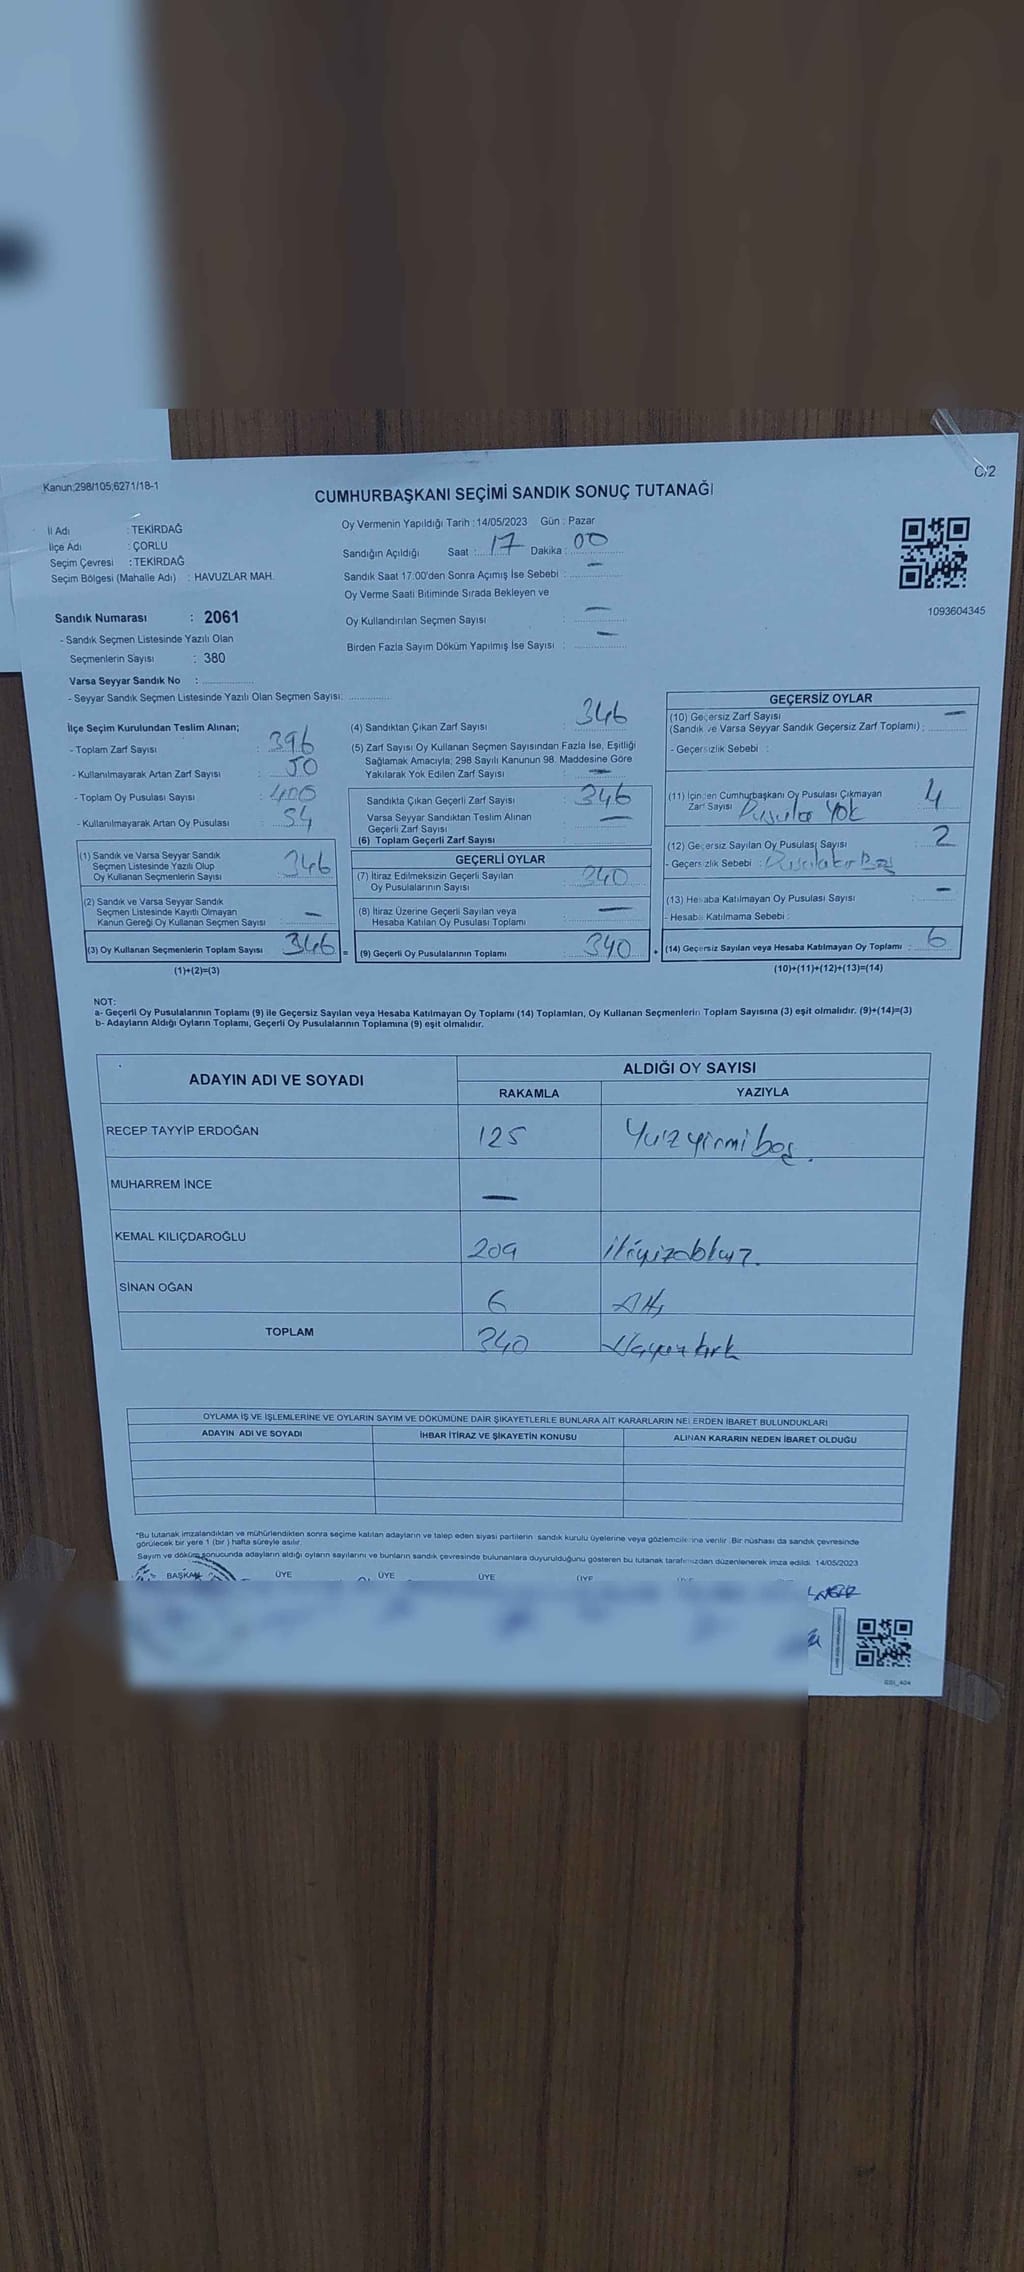 Kanun:298/105;6271/18-1
C/2
CUMHURBAŞKANI SEÇİMİ SANDIK SONUÇ TUTANAĞI
İl Adı : TEKİRDAĞ
İlçe Adı : ÇORLU
Seçim Çevresi : TEKİRDAĞ
Seçim Bölgesi (Mahalle Adı) : HAVUZLAR MAH.
Oy Vermenin Yapıldığı Tarih : 14/05/2023 Gün : Pazar
Sandığın Açıldığı Saat : 17 Dakika : 00
Sandık Saat 17:00'den Sonra Açımış İse Sebebi : —
Oy Verme Saati Bitiminde Sırada Bekleyen ve
Oy Kullandırılan Seçmen Sayısı : —
Birden Fazla Sayım Döküm Yapılmış İse Sayısı : —
1093604345
Sandık Numarası : 2061
- Sandık Seçmen Listesinde Yazılı Olan
Seçmenlerin Sayısı : 380
Varsa Seyyar Sandık No :
- Seyyar Sandık Seçmen Listesinde Yazılı Olan Seçmen Sayısı:
İlçe Seçim Kurulundan Teslim Alınan;
- Toplam Zarf Sayısı : 396
- Kullanılmayarak Artan Zarf Sayısı : 50
- Toplam Oy Pusulası Sayısı : 400
- Kullanılmayarak Artan Oy Pusulası : 54
(1) Sandık ve Varsa Seyyar Sandık
Seçmen Listesinde Yazılı Olup
Oy Kullanan Seçmenlerin Sayısı : 346
(2) Sandık ve Varsa Seyyar Sandık
Seçmen Listesinde Kayıtlı Olmayan
Kanun Gereği Oy Kullanan Seçmen Sayısı : —
(3) Oy Kullanan Seçmenlerin Toplam Sayısı : 346 =
(1)+(2)=(3)
(4) Sandıktan Çıkan Zarf Sayısı : 346
(5) Zarf Sayısı Oy Kullanan Seçmen Sayısından Fazla İse, Eşitliği
Sağlamak Amacıyla; 298 Sayılı Kanunun 98. Maddesine Göre
Yakılarak Yok Edilen Zarf Sayısı : —
Sandıkta Çıkan Geçerli Zarf Sayısı : 346
Varsa Seyyar Sandıktan Teslim Alınan
Geçerli Zarf Sayısı : —
(6) Toplam Geçerli Zarf Sayısı :
GEÇERLİ OYLAR
(7) İtiraz Edilmeksizin Geçerli Sayılan
Oy Pusulalarının Sayısı : 340
(8) İtiraz Üzerine Geçerli Sayılan veya
Hesaba Katılan Oy Pusulası Toplamı : —
(9) Geçerli Oy Pusulalarının Toplamı : 340 +
GEÇERSİZ OYLAR
(10) Geçersiz Zarf Sayısı
(Sandık ve Varsa Seyyar Sandık Geçersiz Zarf Toplamı) : —
- Geçersizlik Sebebi :
(11) İçinden Cumhurbaşkanı Oy Pusulası Çıkmayan
Zarf Sayısı : 4
Pusula Yok
(12) Geçersiz Sayılan Oy Pusulası Sayısı : 2
- Geçersizlik Sebebi :
(13) Hesaba Katılmayan Oy Pusulası Sayısı : —
- Hesaba Katılmama Sebebi :
(14) Geçersiz Sayılan veya Hesaba Katılmayan Oy Toplamı : 6
(10)+(11)+(12)+(13)=(14)
NOT:
a- Geçerli Oy Pusulalarının Toplamı (9) ile Geçersiz Sayılan veya Hesaba Katılmayan Oy Toplamı (14) Toplamları, Oy Kullanan Seçmenlerin Toplam Sayısına (3) eşit olmalıdır. (9)+(14)=(3)
b- Adayların Aldığı Oyların Toplamı, Geçerli Oy Pusulalarının Toplamına (9) eşit olmalıdır.
ADAYIN ADI VE SOYADI
ALDIĞI OY SAYISI
RAKAMLA YAZIYLA
RECEP TAYYİP ERDOĞAN 125 Yüzyirmibeş.
MUHARREM İNCE —
KEMAL KILIÇDAROĞLU 209 ikiyüzdokuz.
SİNAN OĞAN 6 Altı
TOPLAM 340 Üçyüz kırk
OYLAMA İŞ VE İŞLEMLERİNE VE OYLARIN SAYIM VE DÖKÜMÜNE DAİR ŞİKAYETLERLE BUNLARA AİT KARARLARIN NELERDEN İBARET BULUNDUKLARI
ADAYIN ADI VE SOYADI İHBAR İTİRAZ VE ŞİKAYETİN KONUSU ALINAN KARARIN NEDEN İBARET OLDUĞU
*Bu tutanak imzalandıktan ve mühürlendikten sonra seçime katılan adayların ve talep eden siyasi partilerin sandık kurulu üyelerine veya gözlemcilerine verilir. Bir nüshası da sandık çevresinde
görülecek bir yere 1 (bir) hafta süreyle asılır.
Sayım ve döküm sonucunda adayların aldığı oyların sayılarını ve bunların sandık çevresinde bulunanlara duyurulduğunu gösteren bu tutanak tarafımızdan düzenlenerek imza edildi. 14/05/2023
BAŞKAN ÜYE ÜYE ÜYE ÜYE